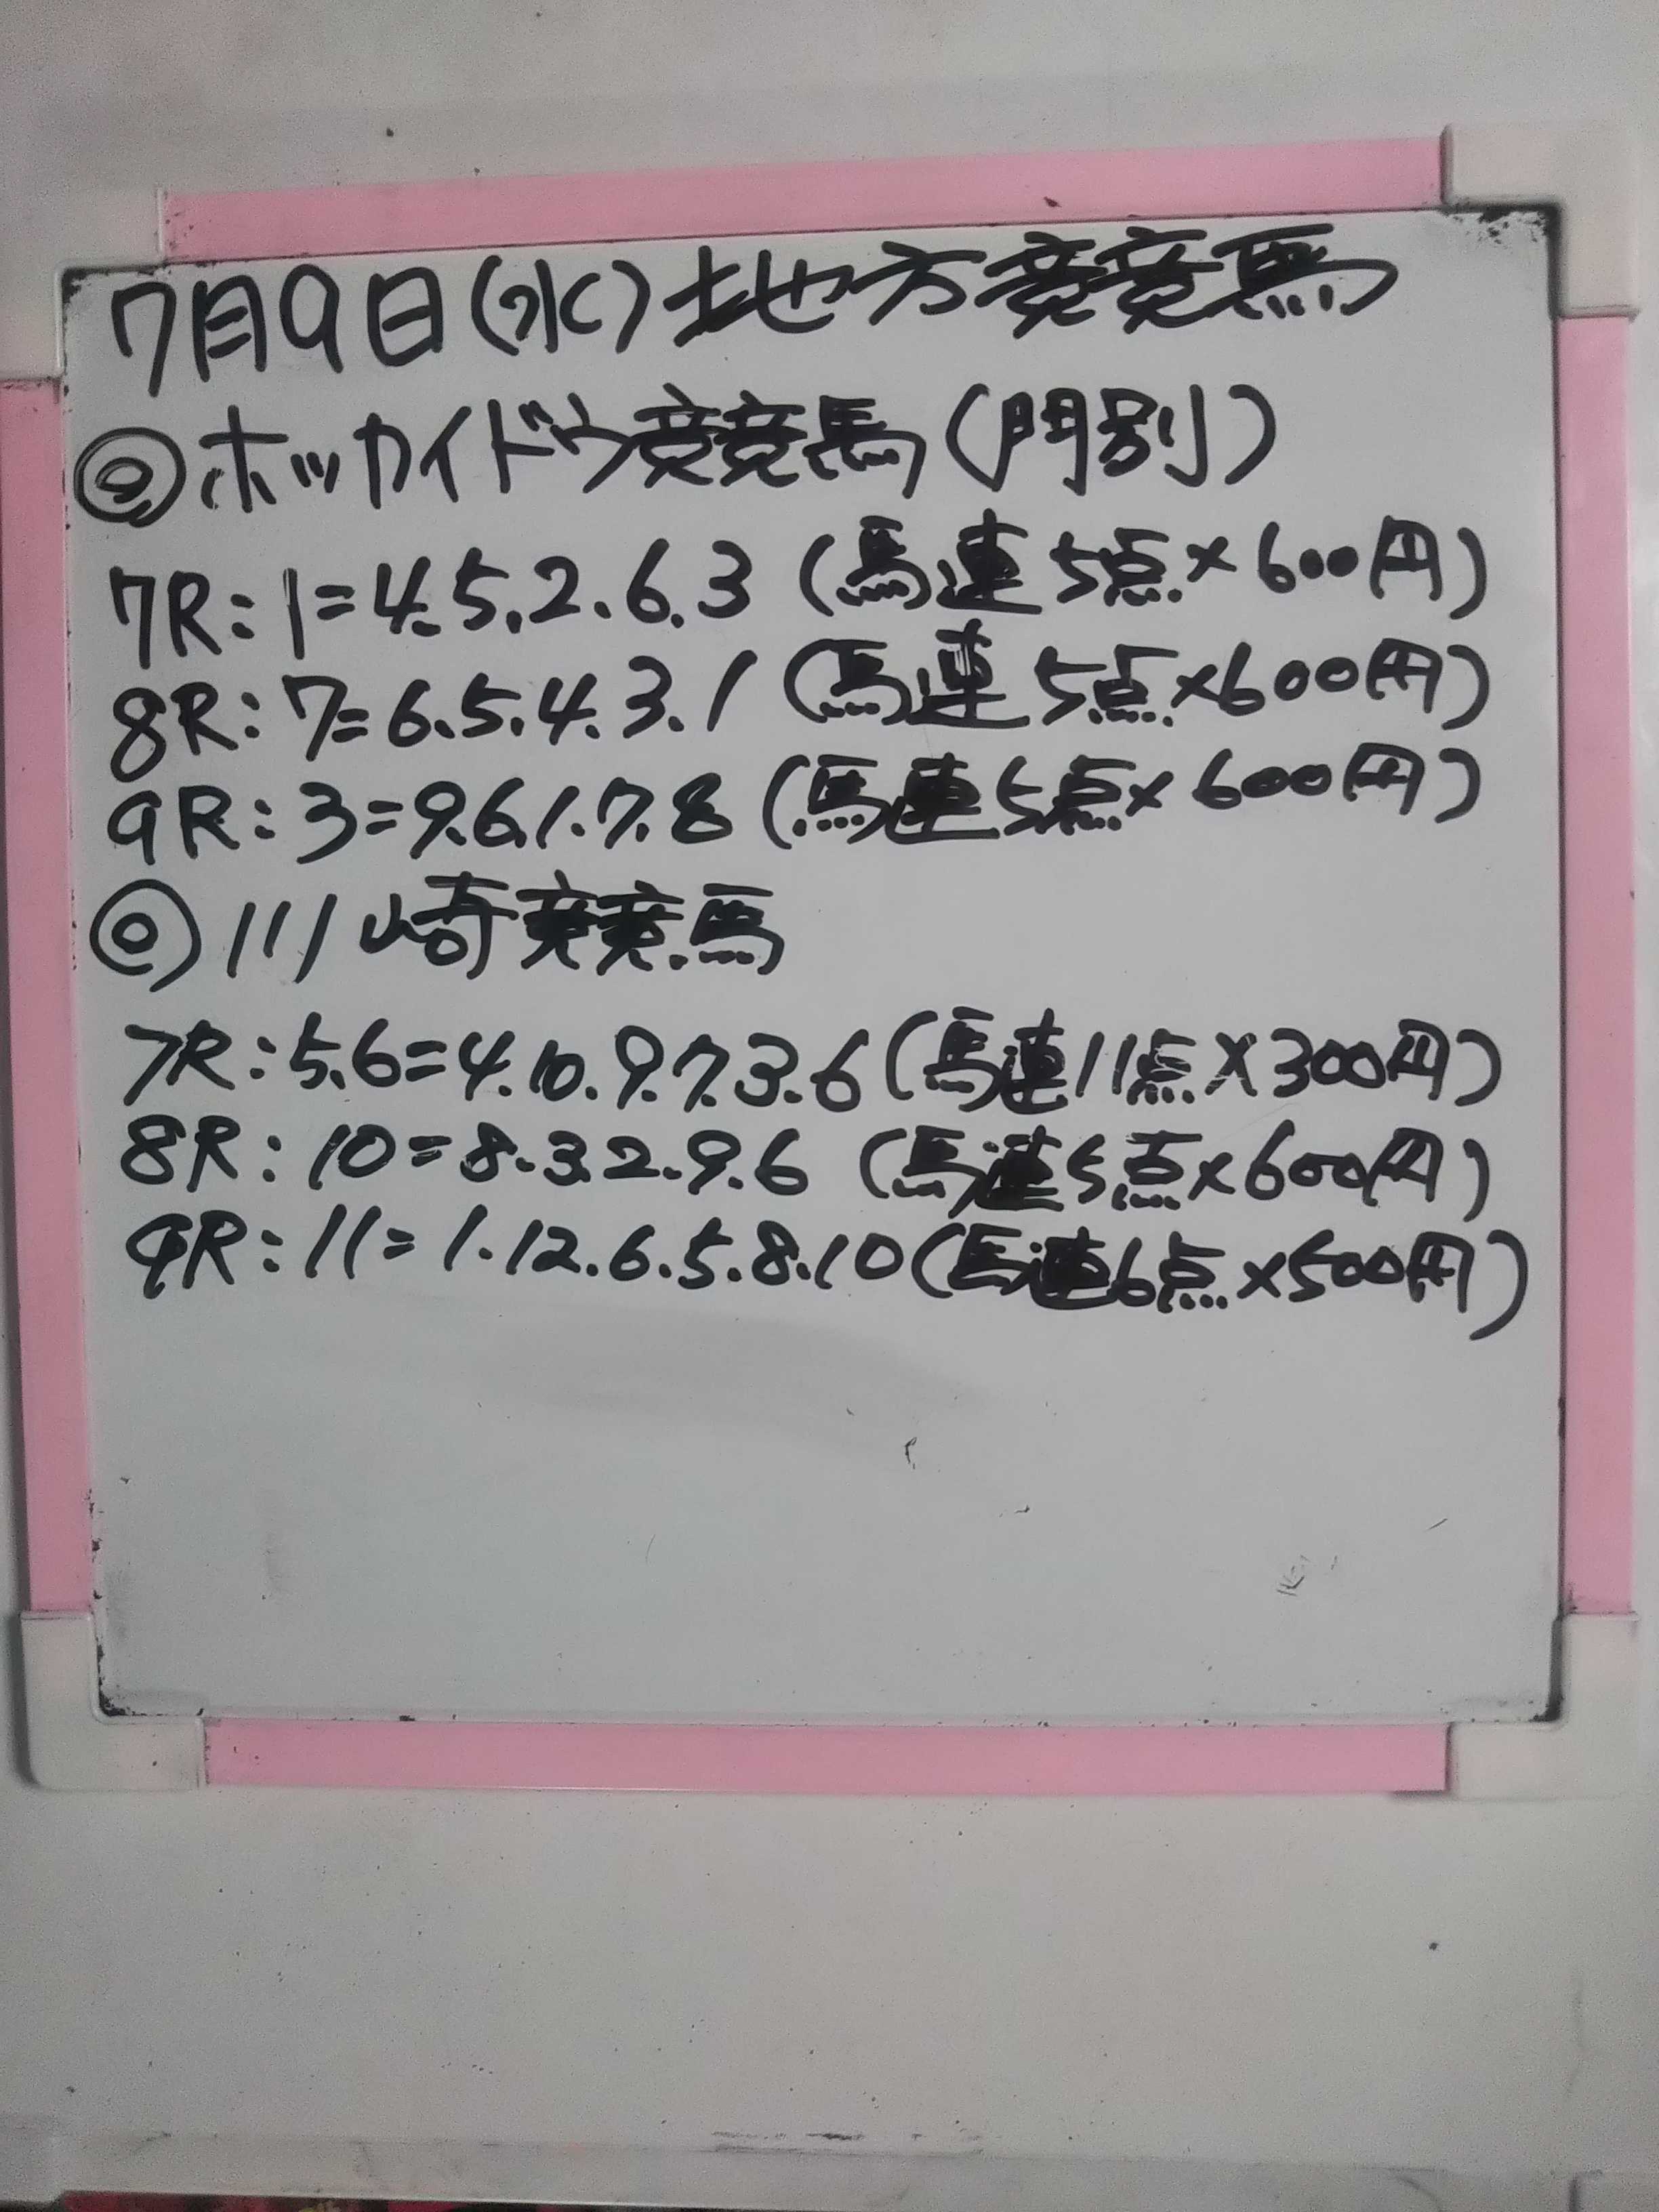 7月9日(水)地方競馬
◎ホッカイドウ競馬(門別)
7R:1=4.5.2.6.3(馬連5点×600円)
8R:7=6.5.4.3.1(馬連5点×600円)
9R:3=9.6.1.7.8(馬連5点×600円)
◎川崎競馬
7R:5.6=4.10.9.7.3.6(馬連11点×300円)
8R:10=8.3.2.9.6(馬連5点×600円)
9R:11=1.12.6.5.8.10(馬連6点×500円)